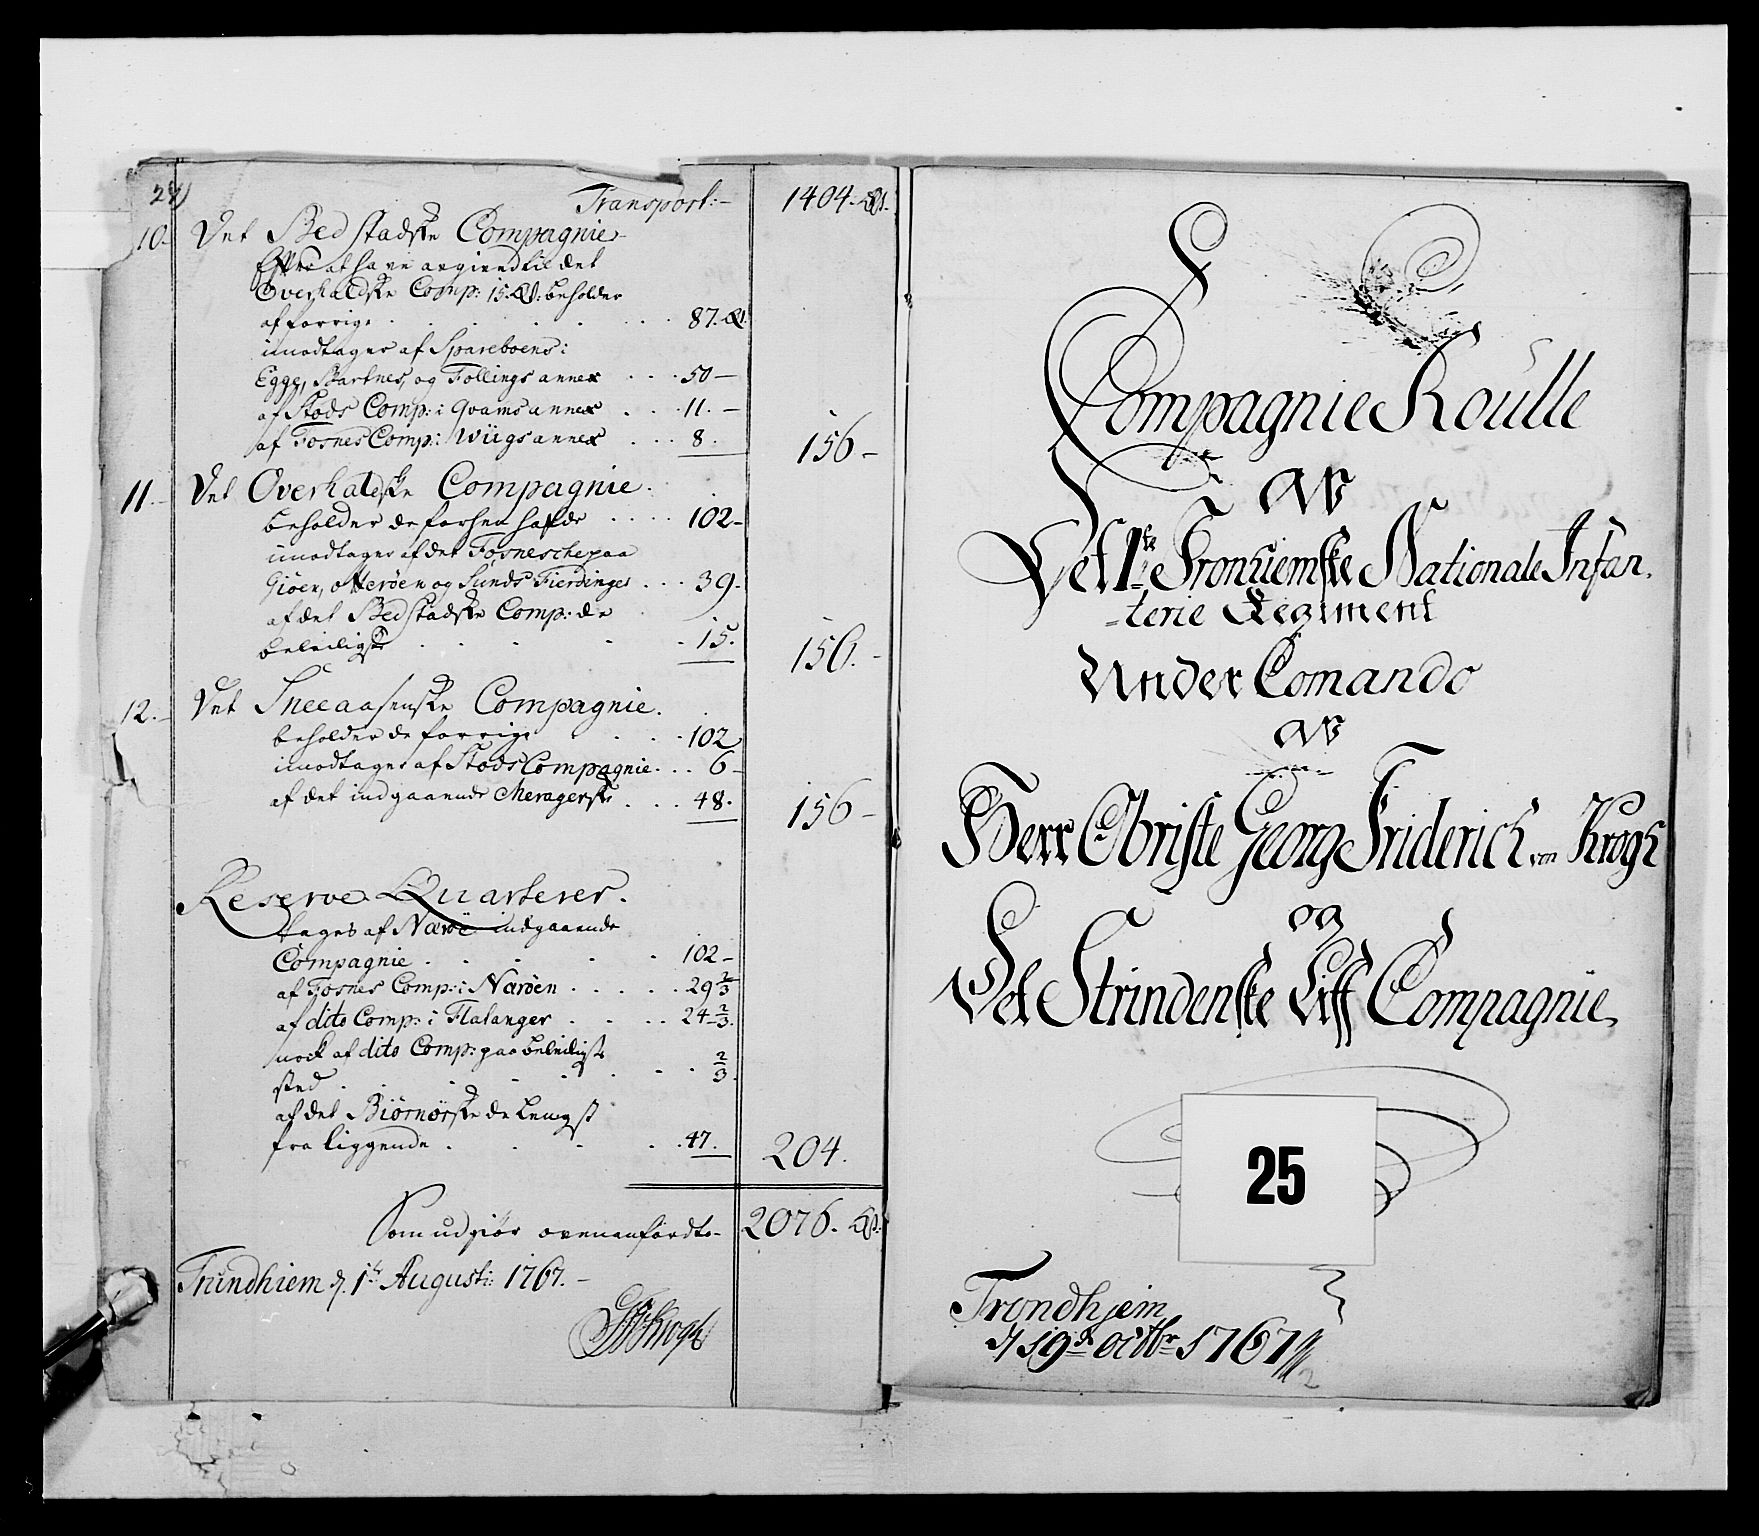 24)
Transport:- 1404. Qt.
10. Det Bedstadske Compagnie
Efter at have avgivend til det
Overhaldske Comp: 15. Qt: beholder
af forrige . . . . . 87. Qt.
imodtager af Spareboens:
Egge, Bartnes, og Follings annex . . . 50 —
af Stods Comp: i Qvams annex . . . 11. —
af Fosnes Comp: i Wiigs annex . . . 8. 156 —
11. Det Overhaldske Compagnie.
beholder de forhen hafde . . . . 102 -
imodtager af det Fosnesche paa
Giøen, otterøen og Sunds Fierdinger . . . 39.
af det Bedstadske Comp: de
beleiligste . . . . . 15. 156. -
12. Det Sneeaasenske Compagnie.
beholder de forrige . . . 102
imodtager af Stods Compagnie . . . 6 -
af det indgaaende Meragerske . . . 48. 156 -
Reserve Quarterer.
tages af Nærøe indgaaende
Compagnie . . . . 102 -
af Fosnes Comp: i Nærøen . . . . 29 2/3
af dito Comp: i Flatanger . . . . 24 2/3.
nock af dito Comp: paa beleiligste
sted . . . . . . 2/3.
af det Biørnørske de lengst
fra liggende . . . . 47. 204.
Som udgiør ovenanførdte - 2076. Qt.
Trindhiem d. 1te Augusti: 1767. —
GFvKrogh
Compagnie Roulle
av
Det 1ste Tronhiemske Nationale Infan-
-terie Regiment
Under Comando
av
Herr Obriste Georg Friderich von Krogh
og
Det Strindenske Liff Compagnie
25
Trondhjem
d 19de octbr 1767
2